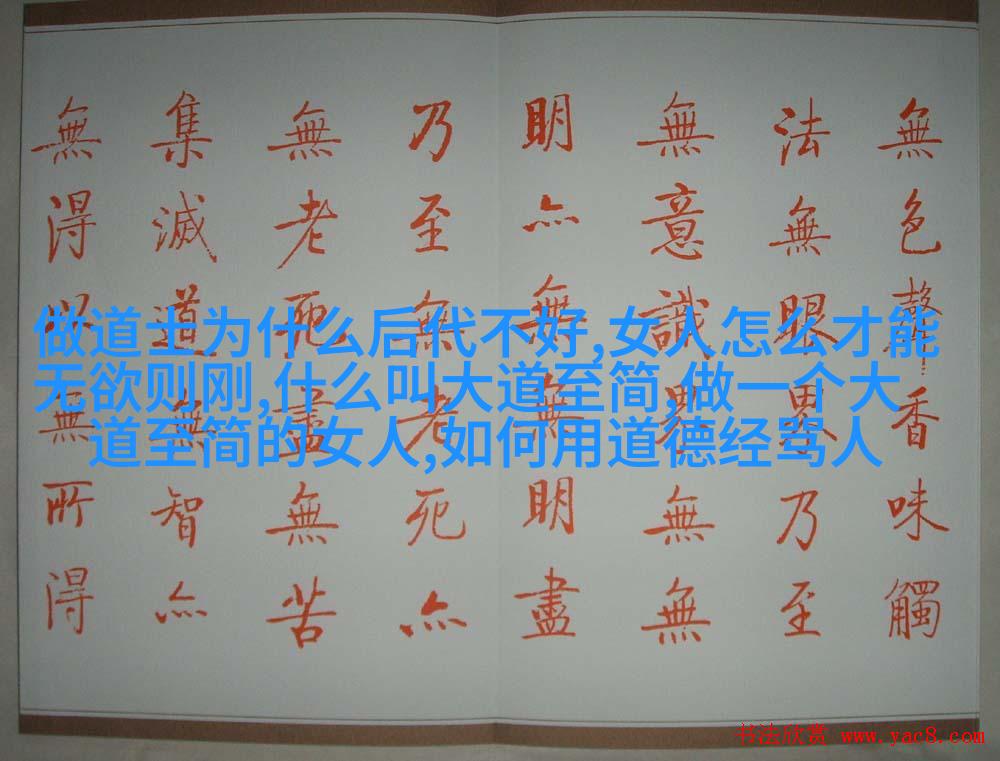 無色聲香味觸
法無眼界乃至
無意識界無無
明亦無無明盡
乃至無老死亦
無老死盡無苦
集滅道無智亦
無得以無所得
做道士为什么后代不好,女人怎么才能
无欲则刚,什么叫大道至简,做一个大
道至简的女人,如何用道德经骂人
书法欣赏 www.yac8.com